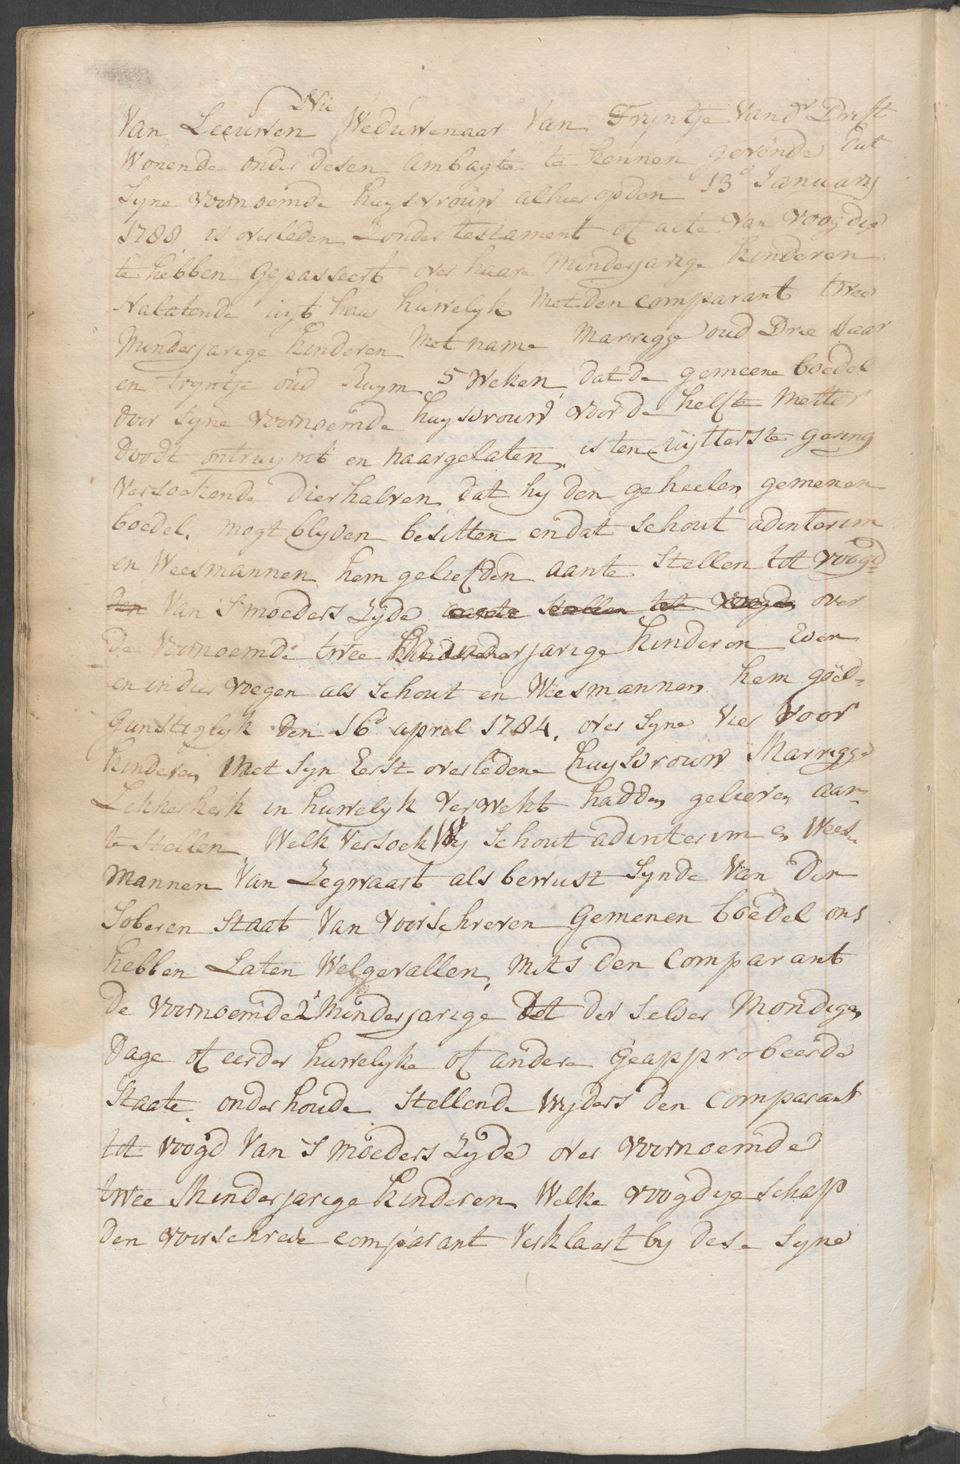 Nu
Van Leeuwen Weduwenaar Van Tryntje Vandr Drift
Wonende onder desen ambagte te kennen gevende dat
Syne voornoemde huysvrouw alhier opden 13e January
1788, is overleden Zonder testament of acte Van Voogdije
te hebben gepasseert over haare Minderjarige Kinderen
Nalatende uijt haar huwelyk Metden comparant twee
Minderjarige Kinderen Met name Marrigje oud Drie Jaar
en Tryntje oud Ruym 5 Weken, dat de gemeene boedel
door Syne voornoemde huysvrouw voor de helfte Metter
doodt ontruymt en naargelaten, is ten uijtterste gering
Versoekende dierhalven dat hy den geheelen gemenen
boedel, mogt blyven besitten en dat Schout adinterim
en Weesmannen hem geliefden aante Stellen tot voogd
den Van S'moeders Zyde aante stellen tot voogd over
de voornoemde twee Minderjarige Kinderen Even
en indier voegen als Schout en Weesmannen hem goed-
gunstiglyk den 16e april 1784, over Syne Vier Voor
Kinderen Met Syn Eerste overledene huysvrouw Marrigje
Lekkerkerk in huwelyk Verwekt hadden gelieven aan-
te Stellen Welk Versoek Wy Schout adinterim en Wees-
mannen Van Zegwaart als bewust Synde Van den
Soberen Staat Van Voorschreven gemenen boedel ons
hebben Laten Welgevallen, mits den Comparant
de voornoemde 2 Minderjarige tot der selver Mondige
dage of eerder huwelyke of andere geapprobeerde
Staate onderhoude Stellende Wyders den comparant
tot voogd Van S'moeders Zyde over voornoemde
twee Minderjarige Kinderen Welke voogdyeschap
den voorschreve comparant Verklaart by dese Syne